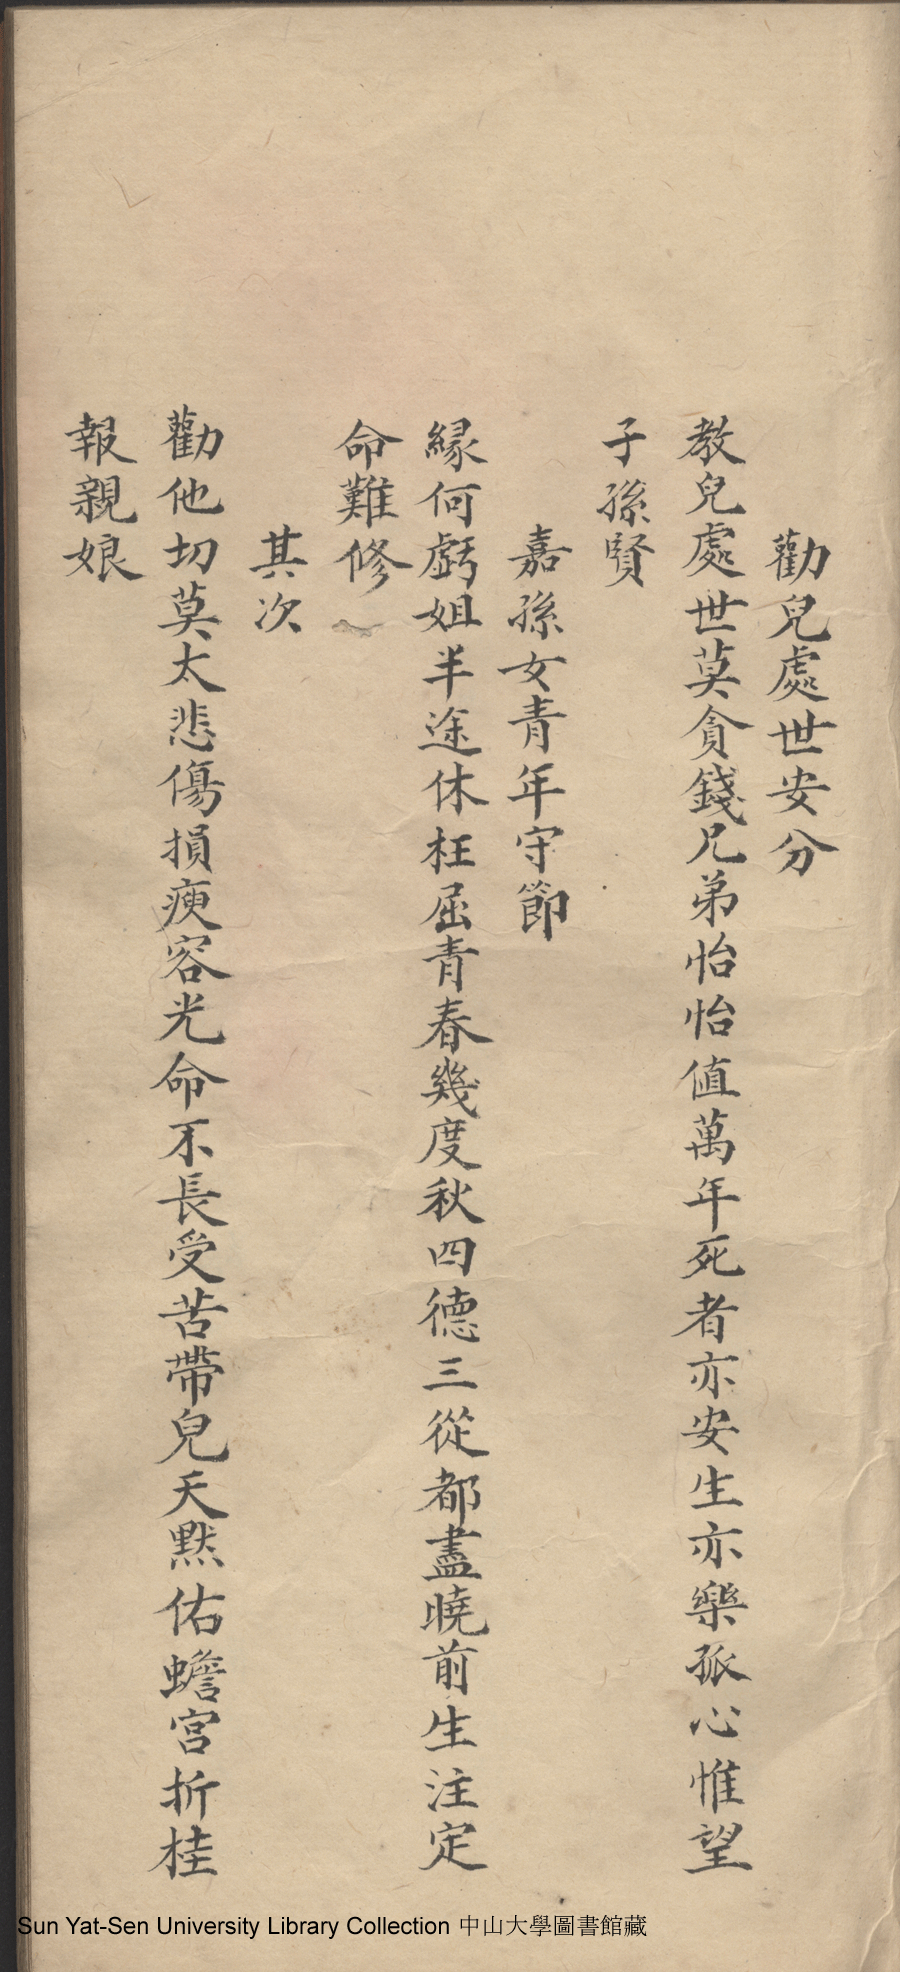 勸兒處世安分
教兒處世莫貪錢兄弟怡怡值萬年死者亦安生亦樂孤心惟望
子孫賢
嘉孫女青年守節
緣何虧姐半途休枉屈青春幾度秋四德三從都盡曉前生注定
命難修
其次
勸他切莫太悲傷損瘐容光命不長受苦帶兒天默佑蟾宮折桂
報親娘
Sun Yat-Sen University Library Collection 中山大學圖書館藏